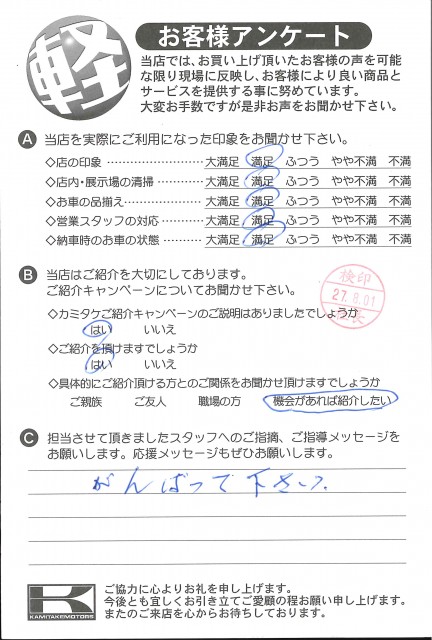 軽
お客様アンケート
当店では、お買い上げ頂いたお客様の声を可能
な限り現場に反映し、お客様により良い商品と
サービスを提供する事に努めています。
大変お手数ですが是非お声をお聞かせ下さい。
A 当店を実際にご利用になった印象をお聞かせ下さい。
◇店の印象 ………………… 大満足 満足 ふつう やや不満 不満
◇店内・展示場の清掃 ………… 大満足 満足 ふつう やや不満 不満
◇お車の品揃え ……………… 大満足 満足 ふつう やや不満 不満
◇営業スタッフの対応 ………… 大満足 満足 ふつう やや不満 不満
◇納車時のお車の状態 ………… 大満足 満足 ふつう やや不満 不満
B 当店はご紹介を大切にしております。
ご紹介キャンペーンについてお聞かせ下さい。
検印
27.8.01
◇カミタケご紹介キャンペーンのご説明はありましたでしょうか
はい いいえ
◇ご紹介を頂けますでしょうか
はい いいえ
◇具体的にご紹介頂ける方とのご関係をお聞かせ頂けますでしょうか
ご親族 ご友人 職場の方 機会があれば紹介したい
C 担当させて頂きましたスタッフへのご指摘、ご指導メッセージを
お願いします。応援メッセージもぜひお願いします。
がんばって下さい。
KAMITAKEMOTORS
ご協力に心よりお礼を申し上げます。
今後とも宜しくお引き立てご愛顧の程お願い申し上げます。
またのご来店を心からお待ちしております。